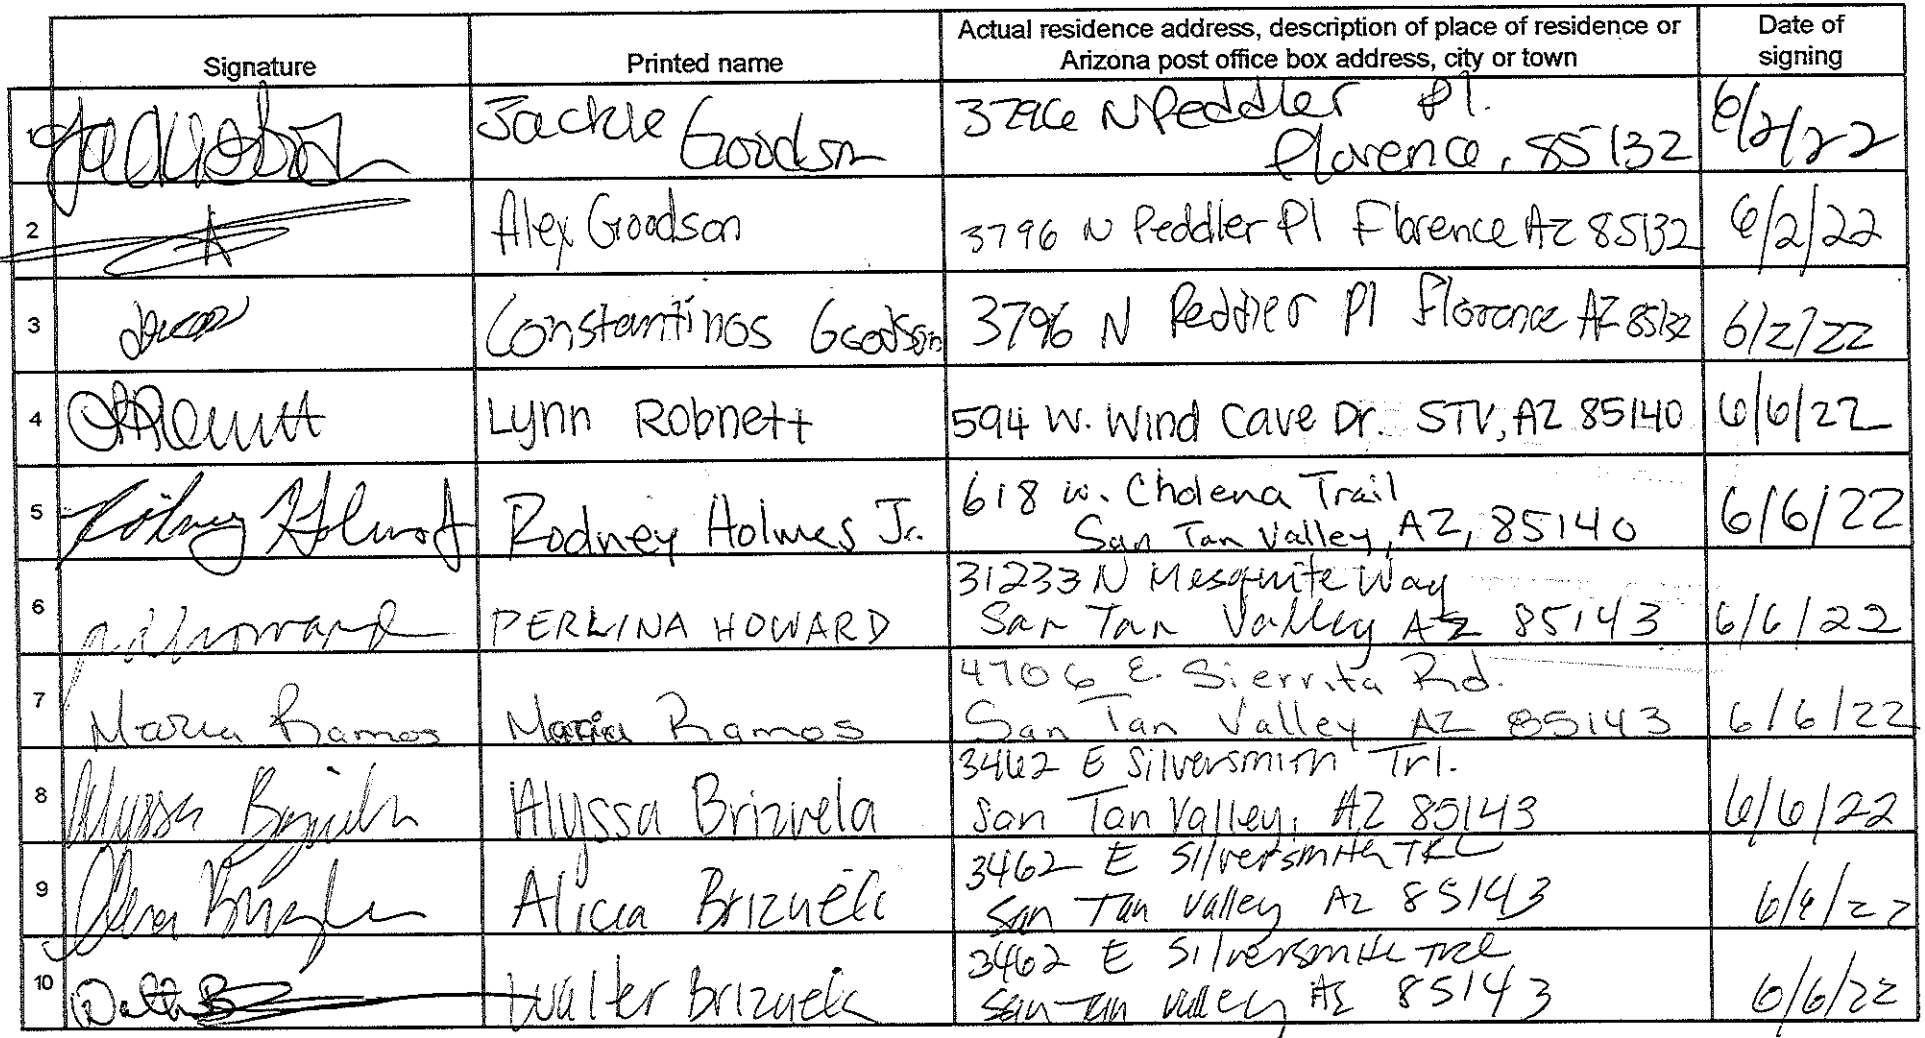 Signature
Printed name
Actual residence address, description of place of residence or
Arizona post office box address, city or town
Date of
signing
Jackie Goodson
3796 N Peddler Pl.
Florence, 85132
6/2/22
2
Alex Goodson
3796 N Peddler Pl Florence AZ 85132
6/2/22
3
Constantinos Goodson
3796 N Peddler Pl Florence AZ 85132
6/2/22
4
Lynn Robnett
594 W. Wind Cave Dr. STV, AZ 85140
6/6/22
5
Rodney Holmes Jr
Rodney Holmes Jr.
618 W. Cholena Trail
San Tan Valley, AZ, 85140
6/6/22
6
PERLINA HOWARD
31233 N Mesquite Way
San Tan Valley AZ 85143
6/6/22
7
Maria Ramos
Maria Ramos
4706 E. Sierrita Rd.
San Tan Valley AZ 85143
6/6/22
8
Alyssa Brizuela
Alyssa Brizuela
3462 E Silversmith Trl.
San Tan Valley, AZ 85143
6/6/22
9
Alicia Brizuela
3462 E Silversmith TRL
San Tan Valley AZ 85143
6/6/22
10
Walter B
Walter Brizuela
3462 E Silversmith TRL
San Tan Valley AZ 85143
6/6/22